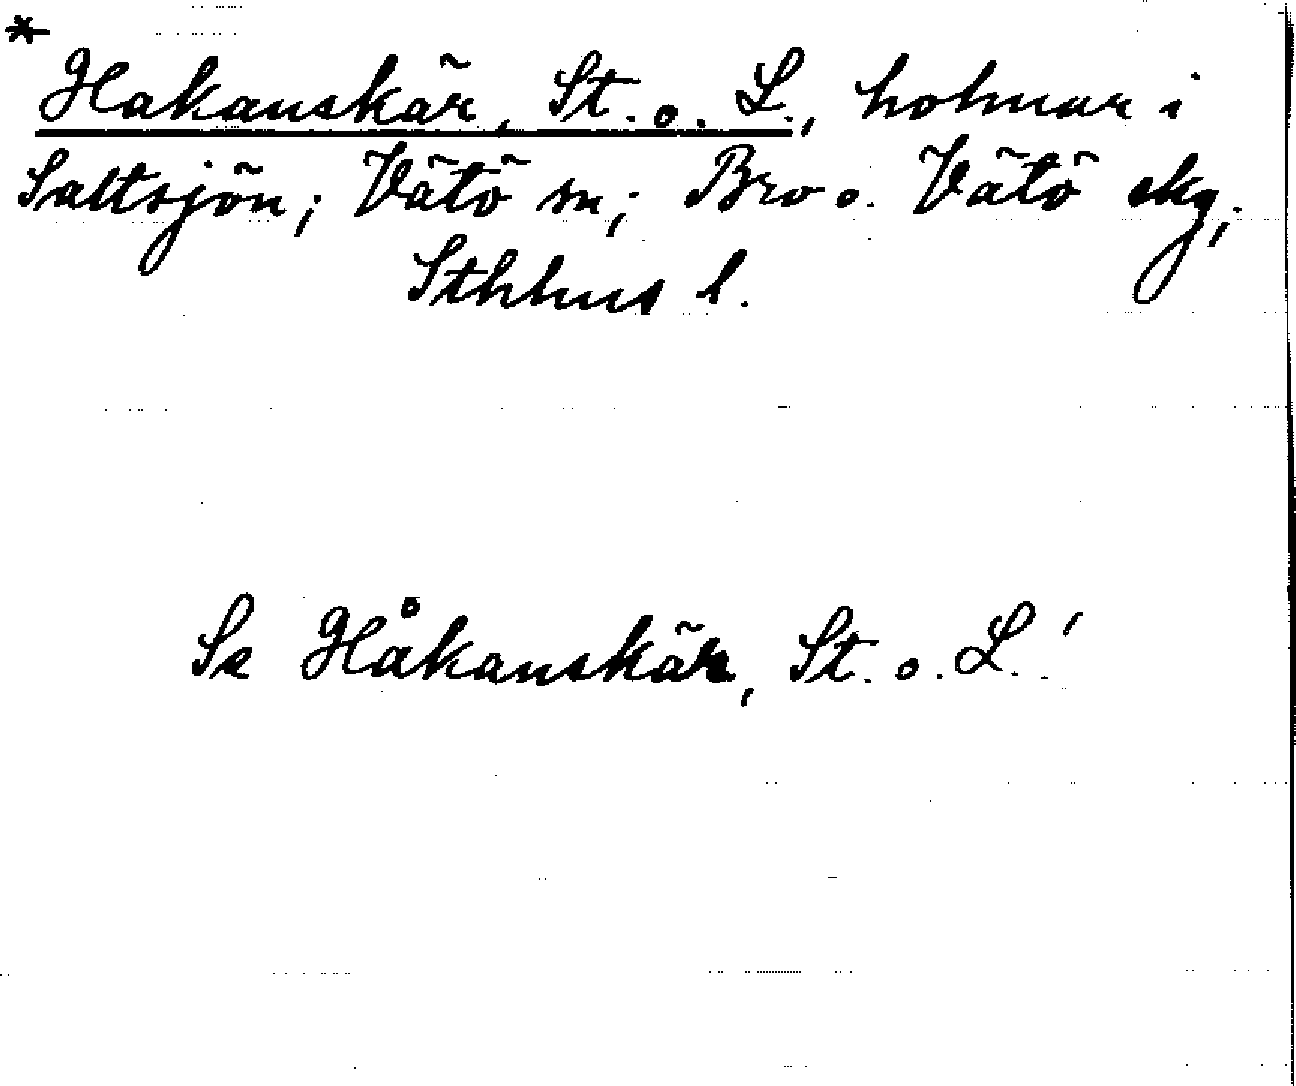 * Hakanskär, St. o. L., holmar i
Saltsjön; Vätö sn; Bro o. Vätö skg;
Sthlms l.
Se Håkanskär, St. o. L.!